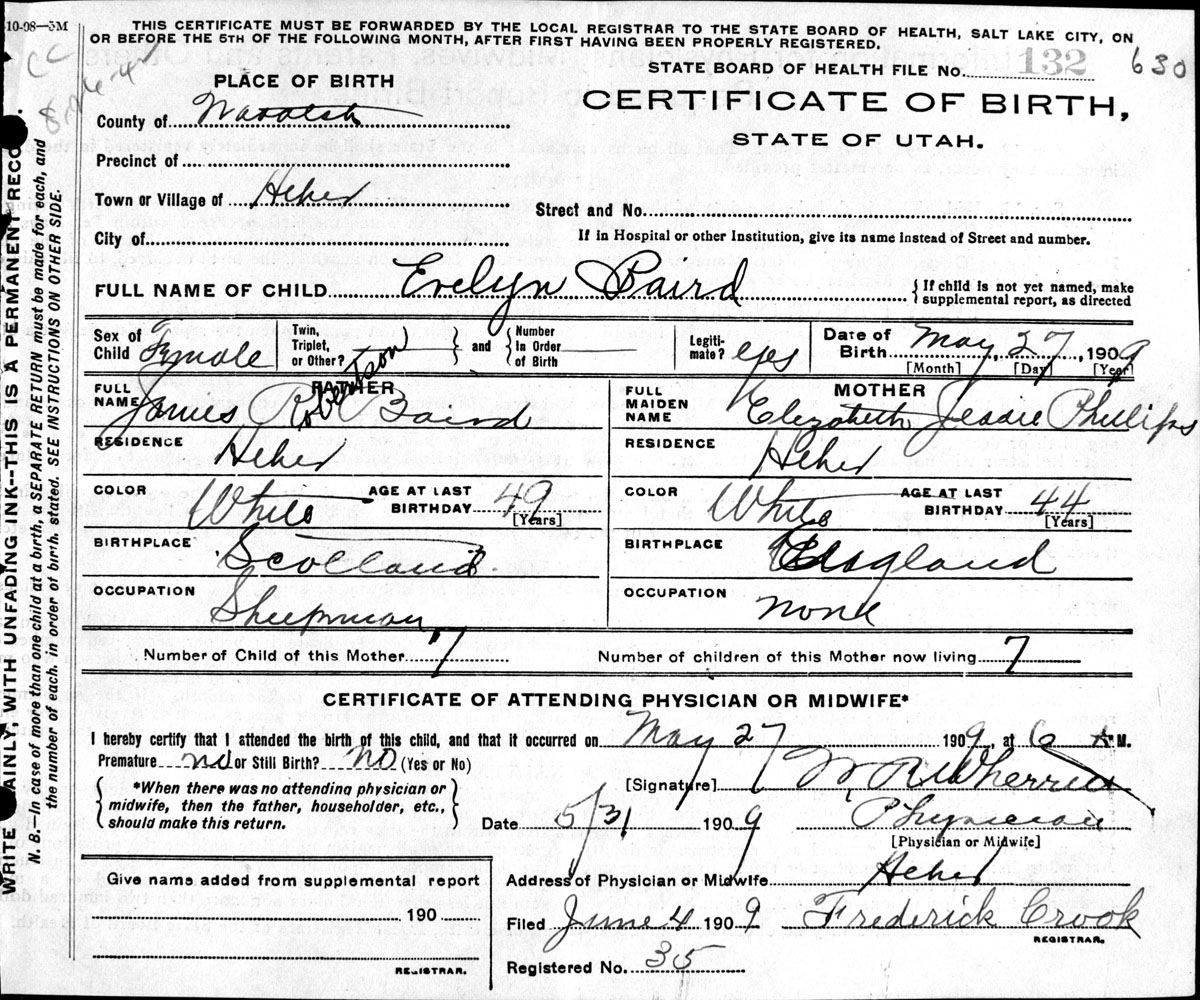 10-08—5M
THIS CERTIFICATE MUST BE FORWARDED BY THE LOCAL REGISTRAR TO THE STATE BOARD OF HEALTH, SALT LAKE CITY, ON
OR BEFORE THE 5TH OF THE FOLLOWING MONTH, AFTER FIRST HAVING BEEN PROPERLY REGISTERED.
PLACE OF BIRTH
STATE BOARD OF HEALTH FILE No. 132 630
CERTIFICATE OF BIRTH,
STATE OF UTAH.
County of Wasatch
Precinct of
Town or Village of Heber
Street and No.
City of
If in Hospital or other Institution, give its name instead of Street and number.
FULL NAME OF CHILD Evelyn Baird
{ If child is not yet named, make
supplemental report, as directed
Sex of Child Female
Twin, Triplet, or Other? and Number In Order of Birth
Legiti-mate? yes
Date of Birth May 27, 1909
[Month] [Day] [Year]
FATHER
FULL NAME James Robertson Baird
RESIDENCE Heber
COLOR White AGE AT LAST BIRTHDAY 49 [Years]
BIRTHPLACE Scotland
OCCUPATION Sheepman
MOTHER
FULL MAIDEN NAME Elizabeth Jessie Phillips
RESIDENCE Heber
COLOR White AGE AT LAST BIRTHDAY 44 [Years]
BIRTHPLACE England
OCCUPATION none
Number of Child of this Mother 7 Number of children of this Mother now living 7
CERTIFICATE OF ATTENDING PHYSICIAN OR MIDWIFE*
I hereby certify that I attended the birth of this child, and that it occurred on May 27 1909, at 6 A M.
Premature no or Still Birth? no (Yes or No)
*When there was no attending physician or
midwife, then the father, householder, etc.,
should make this return.
[Signature] W. R. Wherritt
Date 5/31 1909 Physician
[Physician or Midwife]
Give name added from supplemental report
190
REGISTRAR.
Address of Physician or Midwife Heber
Filed June 4 1909 Frederick Crook
REGISTRAR.
Registered No. 35
WRITE AINLY, WITH UNFADING INK--THIS IS A PERMANENT RECO
N. B.—In case of more than one child at a birth, a SEPARATE RETURN must be made for each, and
the number of each, in order of birth, stated. SEE INSTRUCTIONS ON OTHER SIDE.